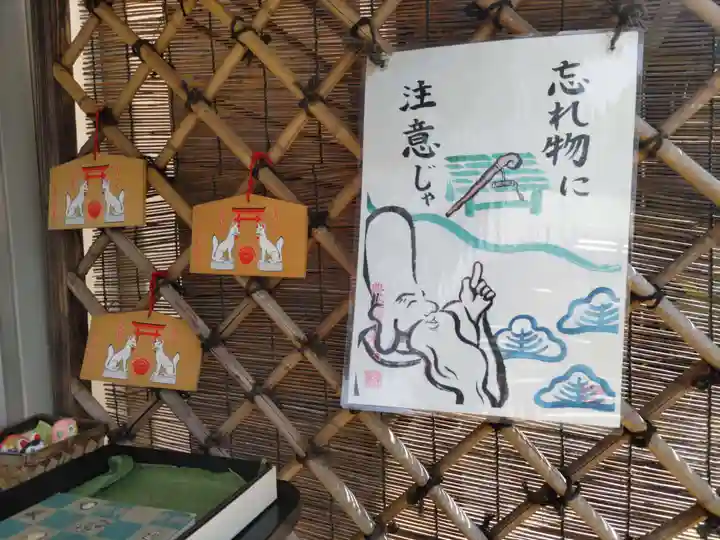 忘れ物に
注意じゃ